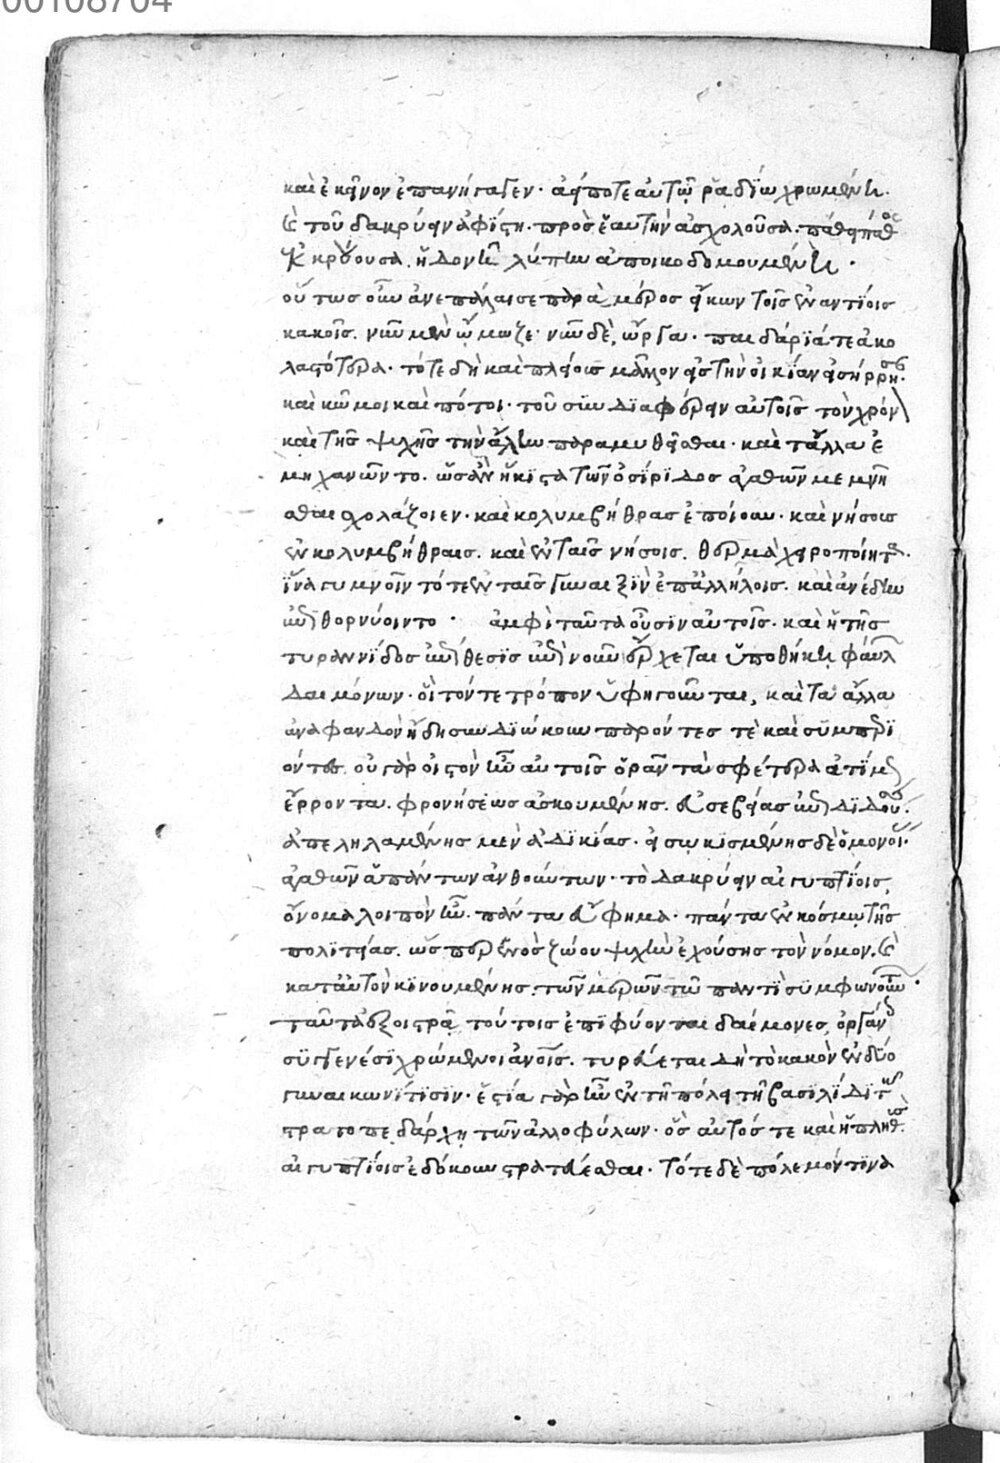 00108704
καὶ ἐκεῖνον ἐπανήγαγεν· ἀείποτε αὐτῷ ῥαδίῳ χρωμένη.
καὶ τοῦ δακρύειν ἀφίστη· πρὸς ἑαυτὴν ἀσχολοῦσα· πάθει πάθος
ἐκκρούουσα. ἡδονῇ λύπην ἀποικοδομουμένη·
οὕτως οὖν ἀνεπάλαισε παρὰ μέρος εἴκων τοῖς ἐναντίοις
κακοῖς. νῦν μὲν ᾤμωζε· νῦν δὲ, ὤργα· παιδάρϊά τε ἀκο
λαστότερα· τότε δὴ καὶ πλείους μᾶλλον εἰς τὴν οἰκίαν εἰσήρρησαν·
καὶ κῶμοι καὶ πότοι· τοῦ συνδϊαφέρειν αὐτοῖς τὸν χρόνον
καὶ τῆς ψυχῆς τὴν ἄλην παραμυθεῖσθαι· καὶ τἄλλα ἐ
μηχανῶντο. ὡς ἂν ἥκϊστα τῶν ὀσίρϊδος ἀγαθῶν μεμνῆ
σθαι σχολάζοιεν· καὶ κολυμβήθρας ἐποίουν· καὶ νήσους
ἐν κολυμβήθραις. καὶ ἐν ταῖς νήσοις. θερμὰ χειροποίητα.
ἵνα γυμνοῖν τό τε ἐν ταῖς γυναιξὶν ἐπ' ἀλλήλοις. καὶ ἀνέδην
ἐνθορνύοιντο· ἀμφὶ ταῦτα οὖσιν αὐτοῖς· καὶ ἡ τῆς
τυραννίδος ἐπίθεσϊς ἐπὶ νοῦν ἔρχεται ὑποθήκη φαύλων
δαιμόνων· οἳ τόν τε τρόπον ὑφηγοῦνται, καὶ τὰ ἄλλα
ἀναφανδὸν ἤδη συνδϊώκουν παρόντες τὲ καὶ συμπρϊ
όντες. οὐ γὰρ οἰστὸν ἦν αὐτοῖς ὁρᾶν τὰ σφέτερα ἀτϊμίᾳ
ἔρροντα. φρονήσεως ἀσκουμένης. εὐσεβείας ἐπϊδϊδούσης·
ἀπεληλαμένης μὲν ἀδϊκίας· εἰσῳκϊσμένης δὲ ὁμονοίας·
ἀγαθῶν ἁπάντων ἀνθούντων· τὸ δακρύειν αἰγυπτίοις,
ὄνομα λοιπὸν ἦν· πάντα εὔφημα· πάντα ἐν κόσμῳ τῆς
πολϊτείας. ὥσπερ ἑνὸς ζώου ψυχὴν ἐχούσης τὸν νόμον. καὶ
κατ' αὐτὸν κϊνουμένης. τῶν μερῶν τῷ παντὶ συμφωνούντων·
ταῦτα ἐξοιστρᾷ τούτοις ἐπϊφύονται δαίμονες, ὀργάνοις
συγγενέσϊ χρώμενοι ἀνοίαις. τυρεύεται δὴ τὸ κακὸν ἐν δύο
γυναικωνίτϊσϊν· ἑστία γὰρ ἦν ἐν τῇ πόλει τῇ βασϊλίδϊ τῷ σ
τρατοπεδάρχῃ τῶν ἀλλοφύλων· οἷς αὐτός τε καὶ ἡ πληθὺς
αἰγυπτίοις ἐδόκουν στρατεύεσθαι· τότε δὲ πόλεμόν τϊνα